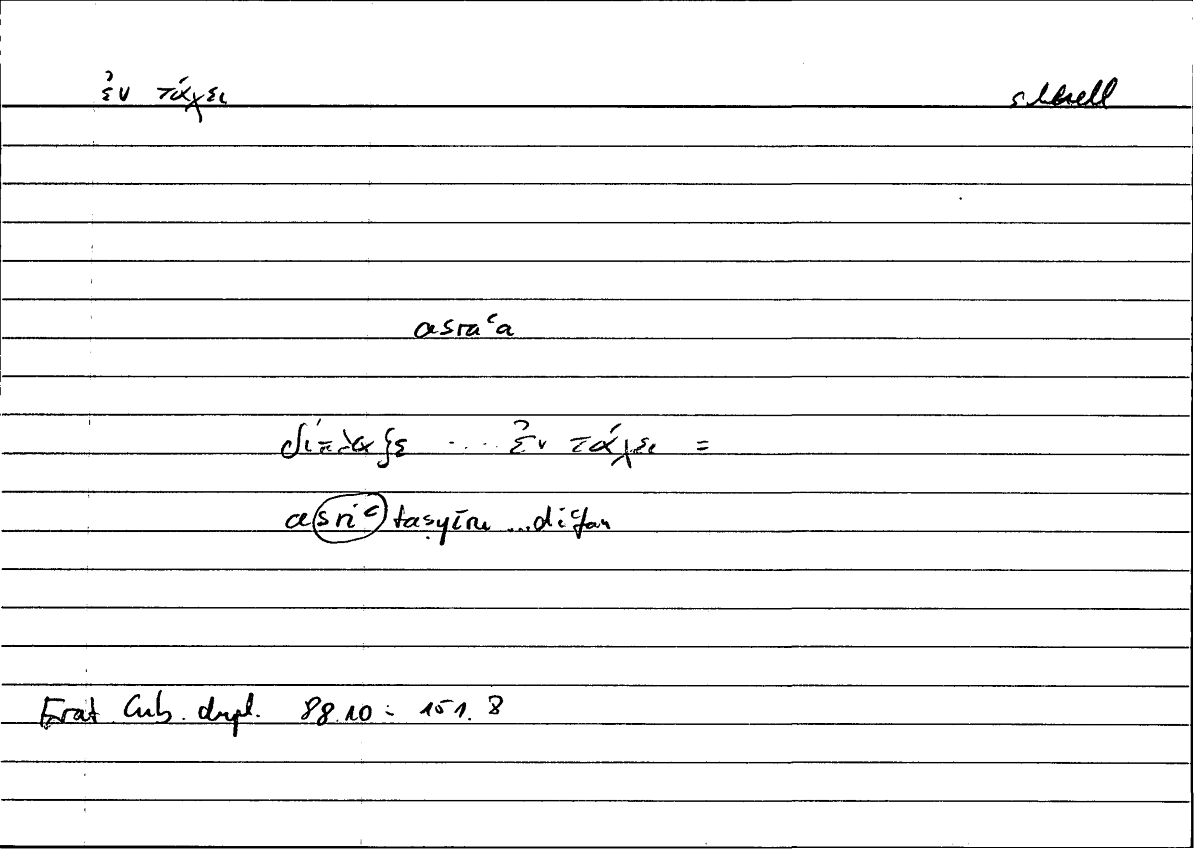 ἐν τάχει schnell
asraʿa
δίπλαζε .... ἐν τάχει =
asriʿ taṣyīra ... diʿfan
Erat Cub. dupl. 88.10 = 151.8